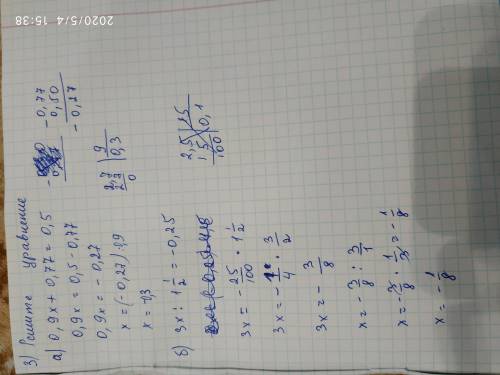 2020/5/4 15:38
3) Решите уравнение
а) 0,9x + 0,77 = 0,5
0,9x = 0,5 - 0,77
0,9x = - 0,27
x = (- 0,27) : 0,9
x = - 0,3
- 0,77
0,50
- 0,27
2,7 | 9
2 7 | 0,3
0
б) 3x : 1 1/2 = - 0,25
3x = - 25/100 · 1 1/2
3x = - 1/4 · 3/2
3x = - 3/8
x = - 3/8 : 3/1
x = - 3/8 · 1/3 = - 1/8
x = - 1/8
2,5 | 25
0,1
100